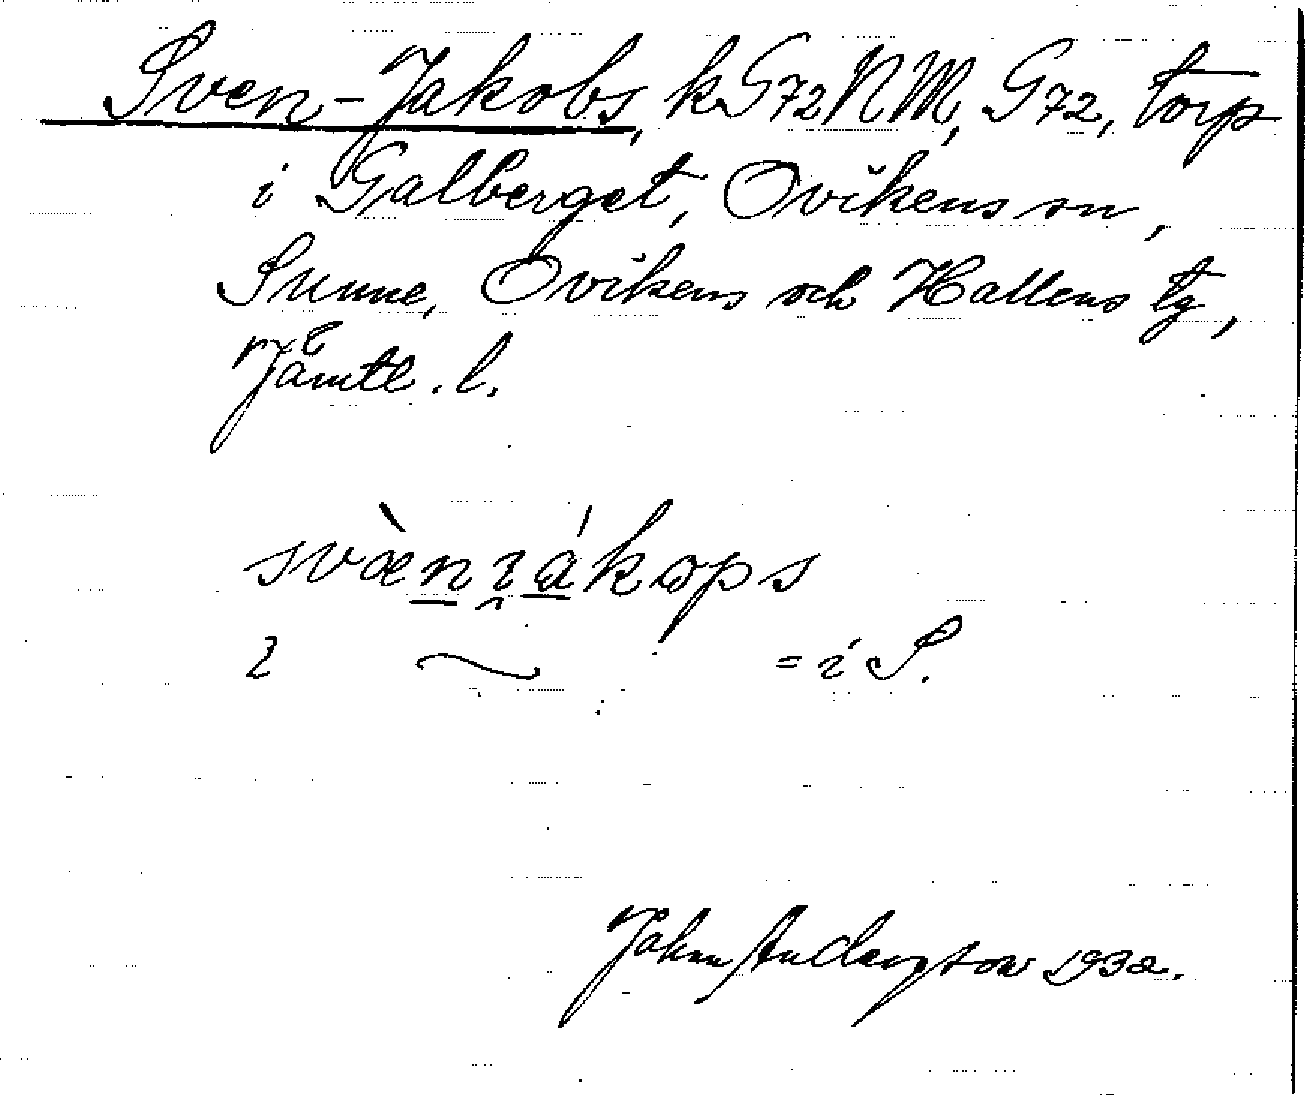 Sven-Jakobs, k G72NM, G72, torp
i Galberget, Ovikens sn,
Sunne, Ovikens och Hallens tg,
Jämtl. l.
svæ̀nɪákops
2 ~ = i S.
Johan Anderstow 1932.